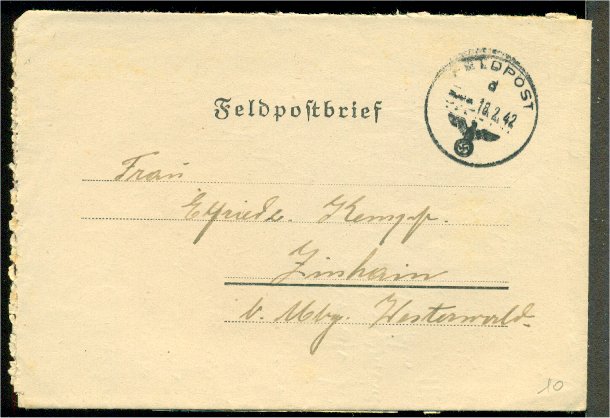 FELDPOST
d
18.2.42
Feldpostbrief
Frau
Elfriede Kempf.
Zinhain
b. Mbg. Westerwald.
10